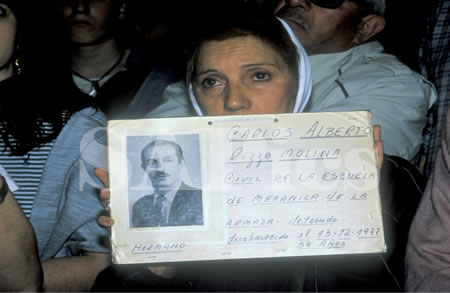 CARLOS ALBERTO
Rizzo MOLINA
CIVIL DE LA ESCUELA
DE MECANICA DE LA
ARMADA - detenido
desaparecido el 13-12-1977
50 AÑOS
HERMANO